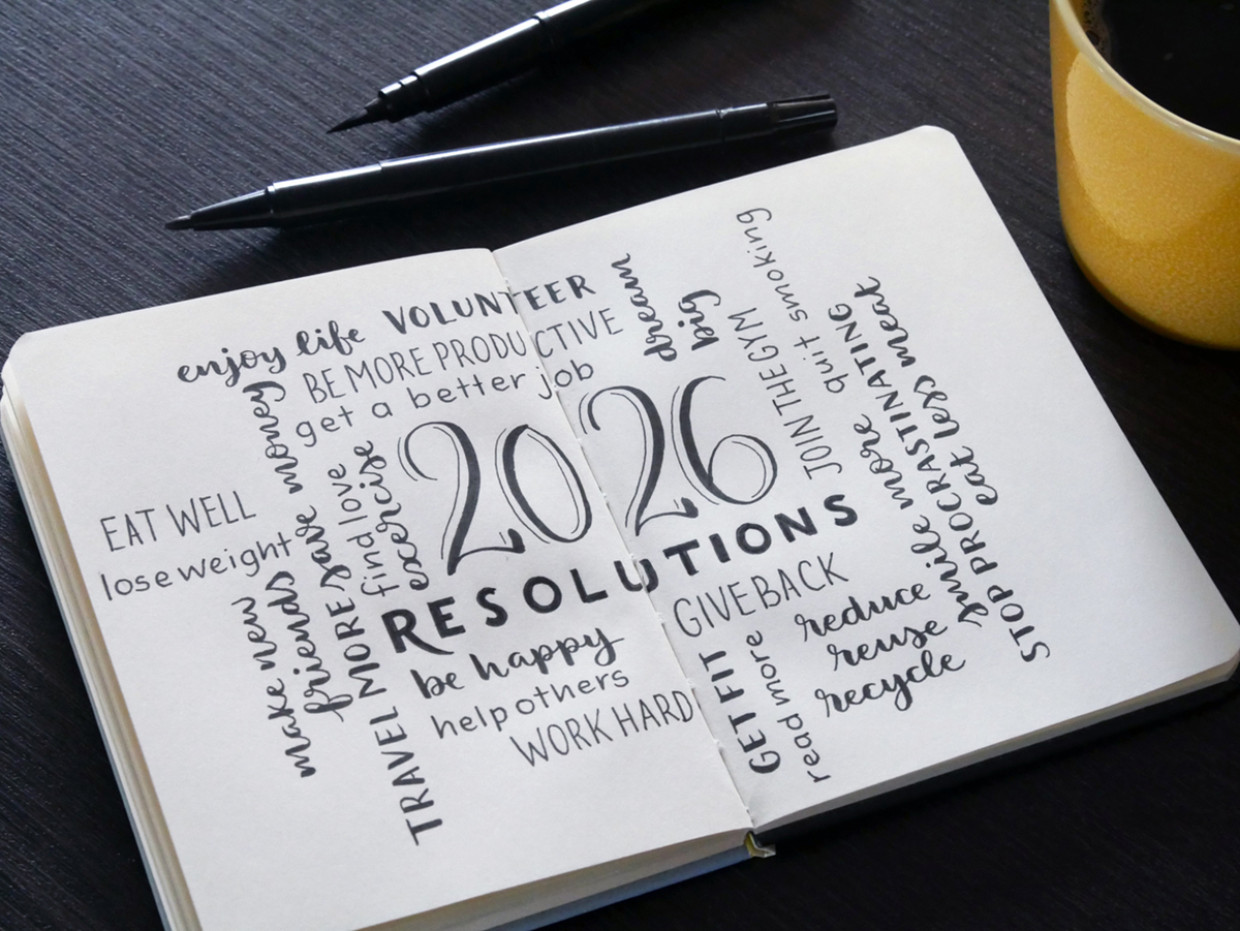 enjoy life
VOLUNTEER
BE MORE PRODUCTIVE
get a better job
dream
big
2026
RESOLUTIONS
EAT WELL
lose weight
save money
find love
exercise
make new
friends
TRAVEL MORE
be happy
help others
WORK HARD
JOIN THE GYM
quit smoking
smile more
STOP PROCRASTINATING
eat less meat
GIVE BACK
GET FIT
read more
reduce
reuse
recycle